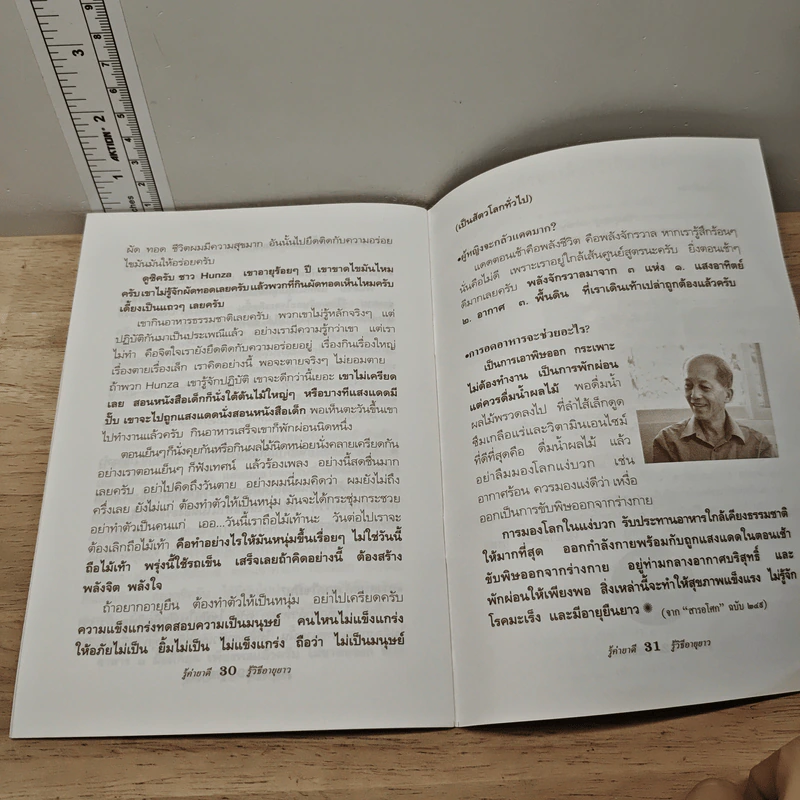 3
2
1
ACTION
ches
1
2
3
4
5
6
7
8
ผัด ทอด ชีวิตผมมีความสุขมาก อันนั้นไปยึดติดกับความอร่อย
ไขมันมันให้อร่อยครับ
ดูซิครับ ชาว Hunza เขาอายุร้อยๆ ปี เขาขาดไขมันไหม
ครับ เขาไม่รู้จักผัดทอดเลยครับ แล้วพวกที่กินผัดทอดเห็นไหมครับ
เดี้ยงเป็นแถวๆ เลยครับ
เขากินอาหารธรรมชาติเลยครับ พวกเขาไม่รู้หลักจริงๆ แต่
ปฏิบัติกันมาเป็นประเพณีแล้ว อย่างเรามีความรู้กว่าเขา แต่เรา
ไม่ทำ คือจิตใจเรายังยึดติดกับความอร่อยอยู่ เรื่องกินเรื่องใหญ่
เรื่องตายเรื่องเล็ก เราคิดอย่างนี้ พอจะตายจริงๆ ไม่ยอมตาย
ถ้าพวก Hunza เขารู้จักปฏิบัติ เขาจะดีกว่านี้เยอะ เขาไม่เครียด
เลย สอนหนังสือเด็กก็นั่งใต้ต้นไม้ใหญ่ๆ หรือบางทีแสงแดดมี
ปั๊บ เขาจะไปถูกแสงแดดนั่งสอนหนังสือเด็ก พอเห็นตะวันขึ้นเขา
ไปทำงานแล้วครับ กินอาหารเสร็จเขาก็พักผ่อนนิดหนึ่ง
ตอนเย็นๆก็นั่งคุยกันหรือกินผลไม้นิดหน่อยนั่งคลายเครียดกัน
อย่างเราตอนเย็นๆ ก็ฟังเทศน์ แล้วร้องเพลง อย่างนี้สดชื่นมาก
เลยครับ อย่าไปคิดถึงวันตาย อย่างผมนี่ผมคิดว่า ผมยังไม่ถึง
ครึ่งเลย ยังไม่แก่ ต้องทำตัวให้เป็นหนุ่ม มันจะได้กระชุ่มกระชวย
อย่าทำตัวเป็นคนแก่ เออ...วันนี้เราถือไม้เท้านะ วันต่อไปเราจะ
ต้องเลิกถือไม้เท้า คือทำอย่างไรให้มันหนุ่มขึ้นเรื่อยๆ ไม่ใช่วันนี้
ถือไม้เท้า พรุ่งนี้ใช้รถเข็น เสร็จเลยถ้าคิดอย่างนี้ ต้องสร้าง
พลังจิต พลังใจ
ถ้าอยากอายุยืน ต้องทำตัวให้เป็นหนุ่ม อย่าไปเครียดครับ
ความแข็งแกร่งทดสอบความเป็นมนุษย์ คนไหนไม่แข็งแกร่ง
ให้อภัยไม่เป็น ยิ้มไม่เป็น ไม่แข็งแกร่ง ถือว่า ไม่เป็นมนุษย์
รู้ค่ายาดี 30 รู้วิธีอายุยาว
(เป็นสัตวโลกทั่วไป)
•ผู้หญิงจะกลัวแดดมาก?
แดดตอนเช้าคือพลังชีวิต คือพลังจักรวาล หากเรารู้สึกร้อนๆ
นั่นคือไม่ดี เพราะเราอยู่ใกล้เส้นศูนย์สูตรนะครับ ยิ่งตอนเช้าๆ
ดีมากเลยครับ พลังจักรวาลมาจาก ๓ แห่ง ๑. แสงอาทิตย์
๒. อากาศ ๓. พื้นดิน ที่เราเดินเท้าเปล่าถูกต้องแล้วครับ
•การอดอาหารจะช่วยอะไร?
เป็นการเอาพิษออก กระเพาะ
ไม่ต้องทำงาน เป็นการพักผ่อน
แต่ควรดื่มน้ำผลไม้ พอดื่มน้ำ
ผลไม้พรวดลงไป ที่ลำไส้เล็กดูด
ซึมเกลือแร่และวิตามินเอนไซม์
ที่ดีที่สุดคือ ดื่มน้ำผลไม้ แล้ว
อย่าลืมมองโลกแง่บวก เช่น
อากาศร้อน ควรมองแง่ดีว่า เหงื่อ
ออกเป็นการขับพิษออกจากร่างกาย
การมองโลกในแง่บวก รับประทานอาหารใกล้เคียงธรรมชาติ
ให้มากที่สุด ออกกำลังกายพร้อมกับถูกแสงแดดในตอนเช้า
ขับพิษออกจากร่างกาย อยู่ท่ามกลางอากาศบริสุทธิ์ และ
พักผ่อนให้เพียงพอ สิ่งเหล่านี้จะทำให้สุขภาพแข็งแรง ไม่รู้จัก
โรคมะเร็ง และมีอายุยืนยาว (จาก "สารอโศก" ฉบับ ๒๔๕)
รู้ค่ายาดี 31 รู้วิธีอายุยาว